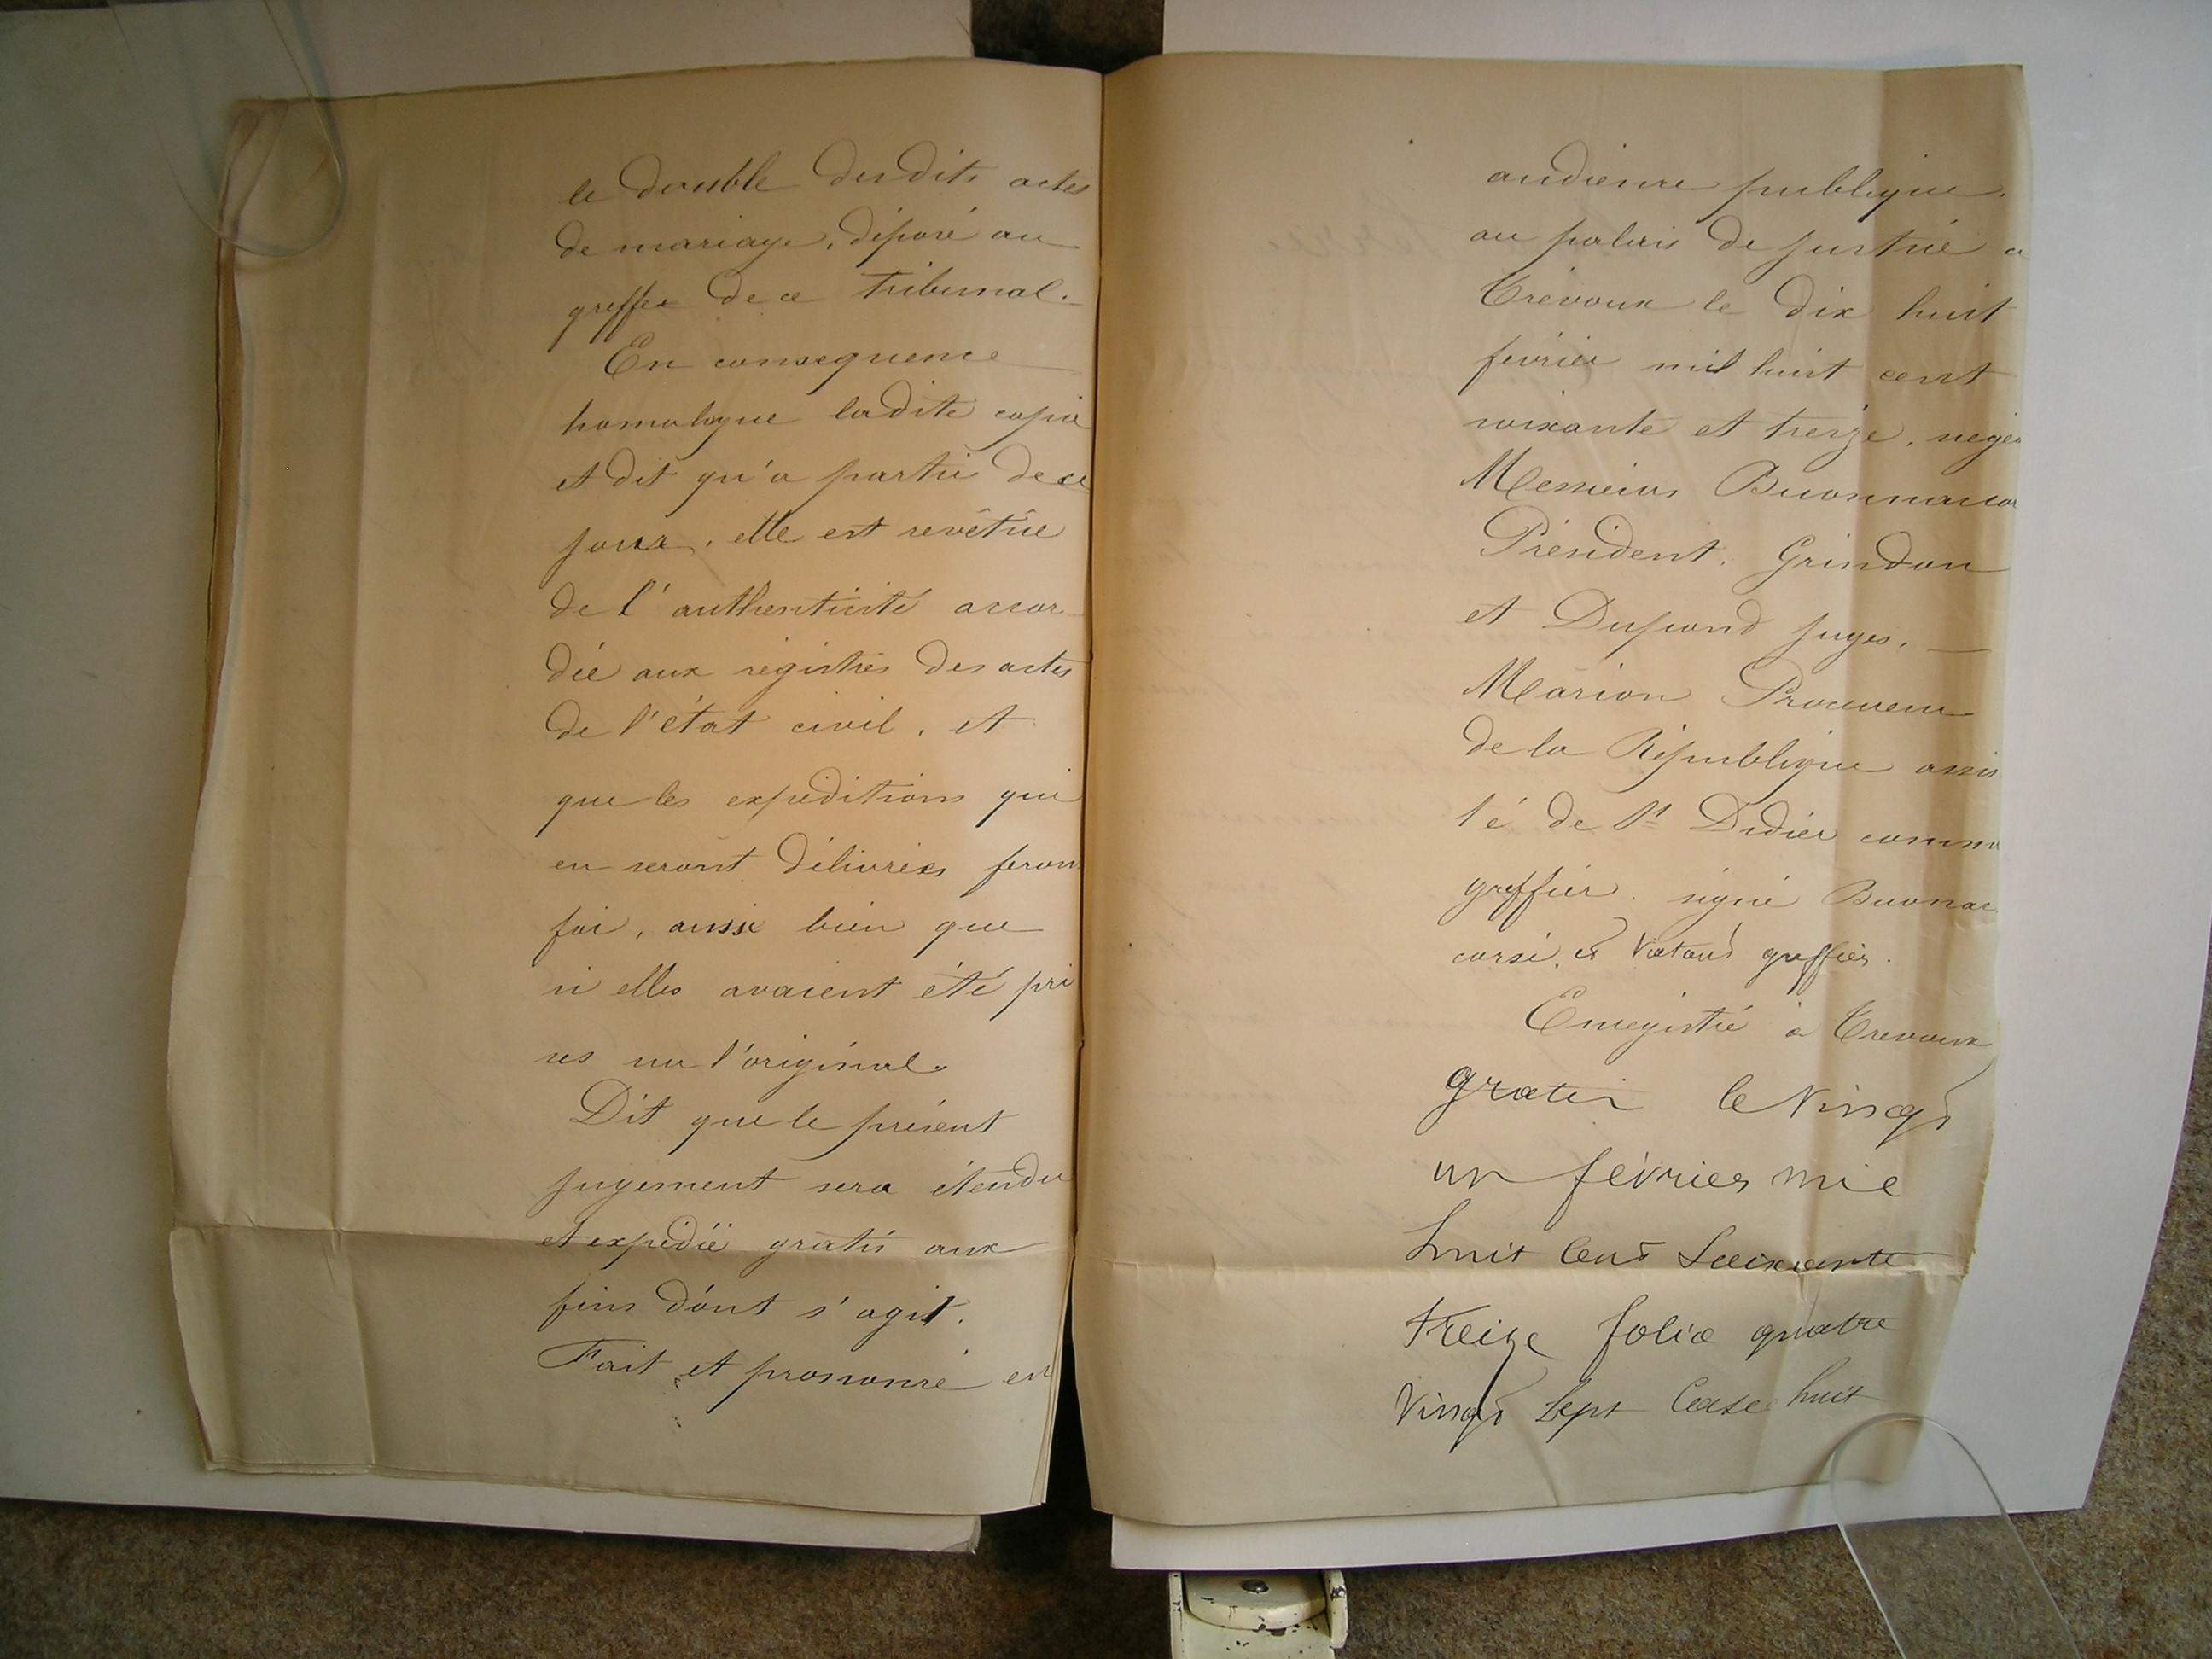 le double desdits actes
de mariage, déposé au
greffe de ce tribunal.
En consequence
homologue ladite copie
et dit qu'a partir de ce
jour, elle est revêtue
de l'authenticité accor
dée aux registres des actes
de l'état civil, et
que les expeditions qui
en seront délivrées feront
foi, aussi bien que
si elles avaient été pri
ses sur l'original.
Dit que le présent
jugement sera étendu
et expédié gratis aux
fins dont s'agit.
Fait et prononcé en
audience publique,
au palais de justice a
Trévoux le dix huit
février mil huit cent
soixante et treize,
Messieurs
Président, Grindon
et Dupond juges,
Marion Procureur
de la République assis
té de St Didier comm
greffier. signé Buonac
corsi, et greffier.
Enregistré à Trevoux
gratis le vingt
un février mil
huit cent Soixante
treize folio quatre
vingt sept Case huit